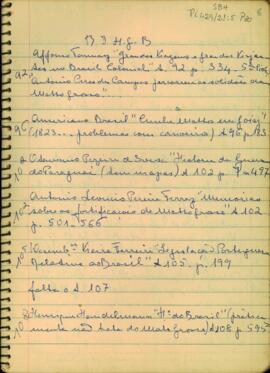 SB4
PL 429/21:5 Pas
6
R I H G B
Affonso Taunay "Grandes Viagens e grandes Viajan
tes no Brasil Colonial" A. 92 p. 334
92 Antonio Pires de Campos percorreu as solidões do
Matto Grosso"
96 Americano Brasil "Cunha Mattos em Goiaz"
(1823... problemas com carreira) A 96 p. 183
Octaviano Pereira de Souza "Historia da Guerra
do Paraguai (bom mapas) d 102 p. 9 a 497
Antonio Leoncio Pereira Ferraz "Memorias
102 sobre as fortificações de Matto Grosso" d 102
p. 501. 566
Vieira Ferreira "Legislação Portuguesa
relativa ao Brasil" d 105. p. 199
falta o d 107
Henrique Handelmann "Ha do Brasil" (pratica
mente não trata do Mato Grosso) d 108 p. 595